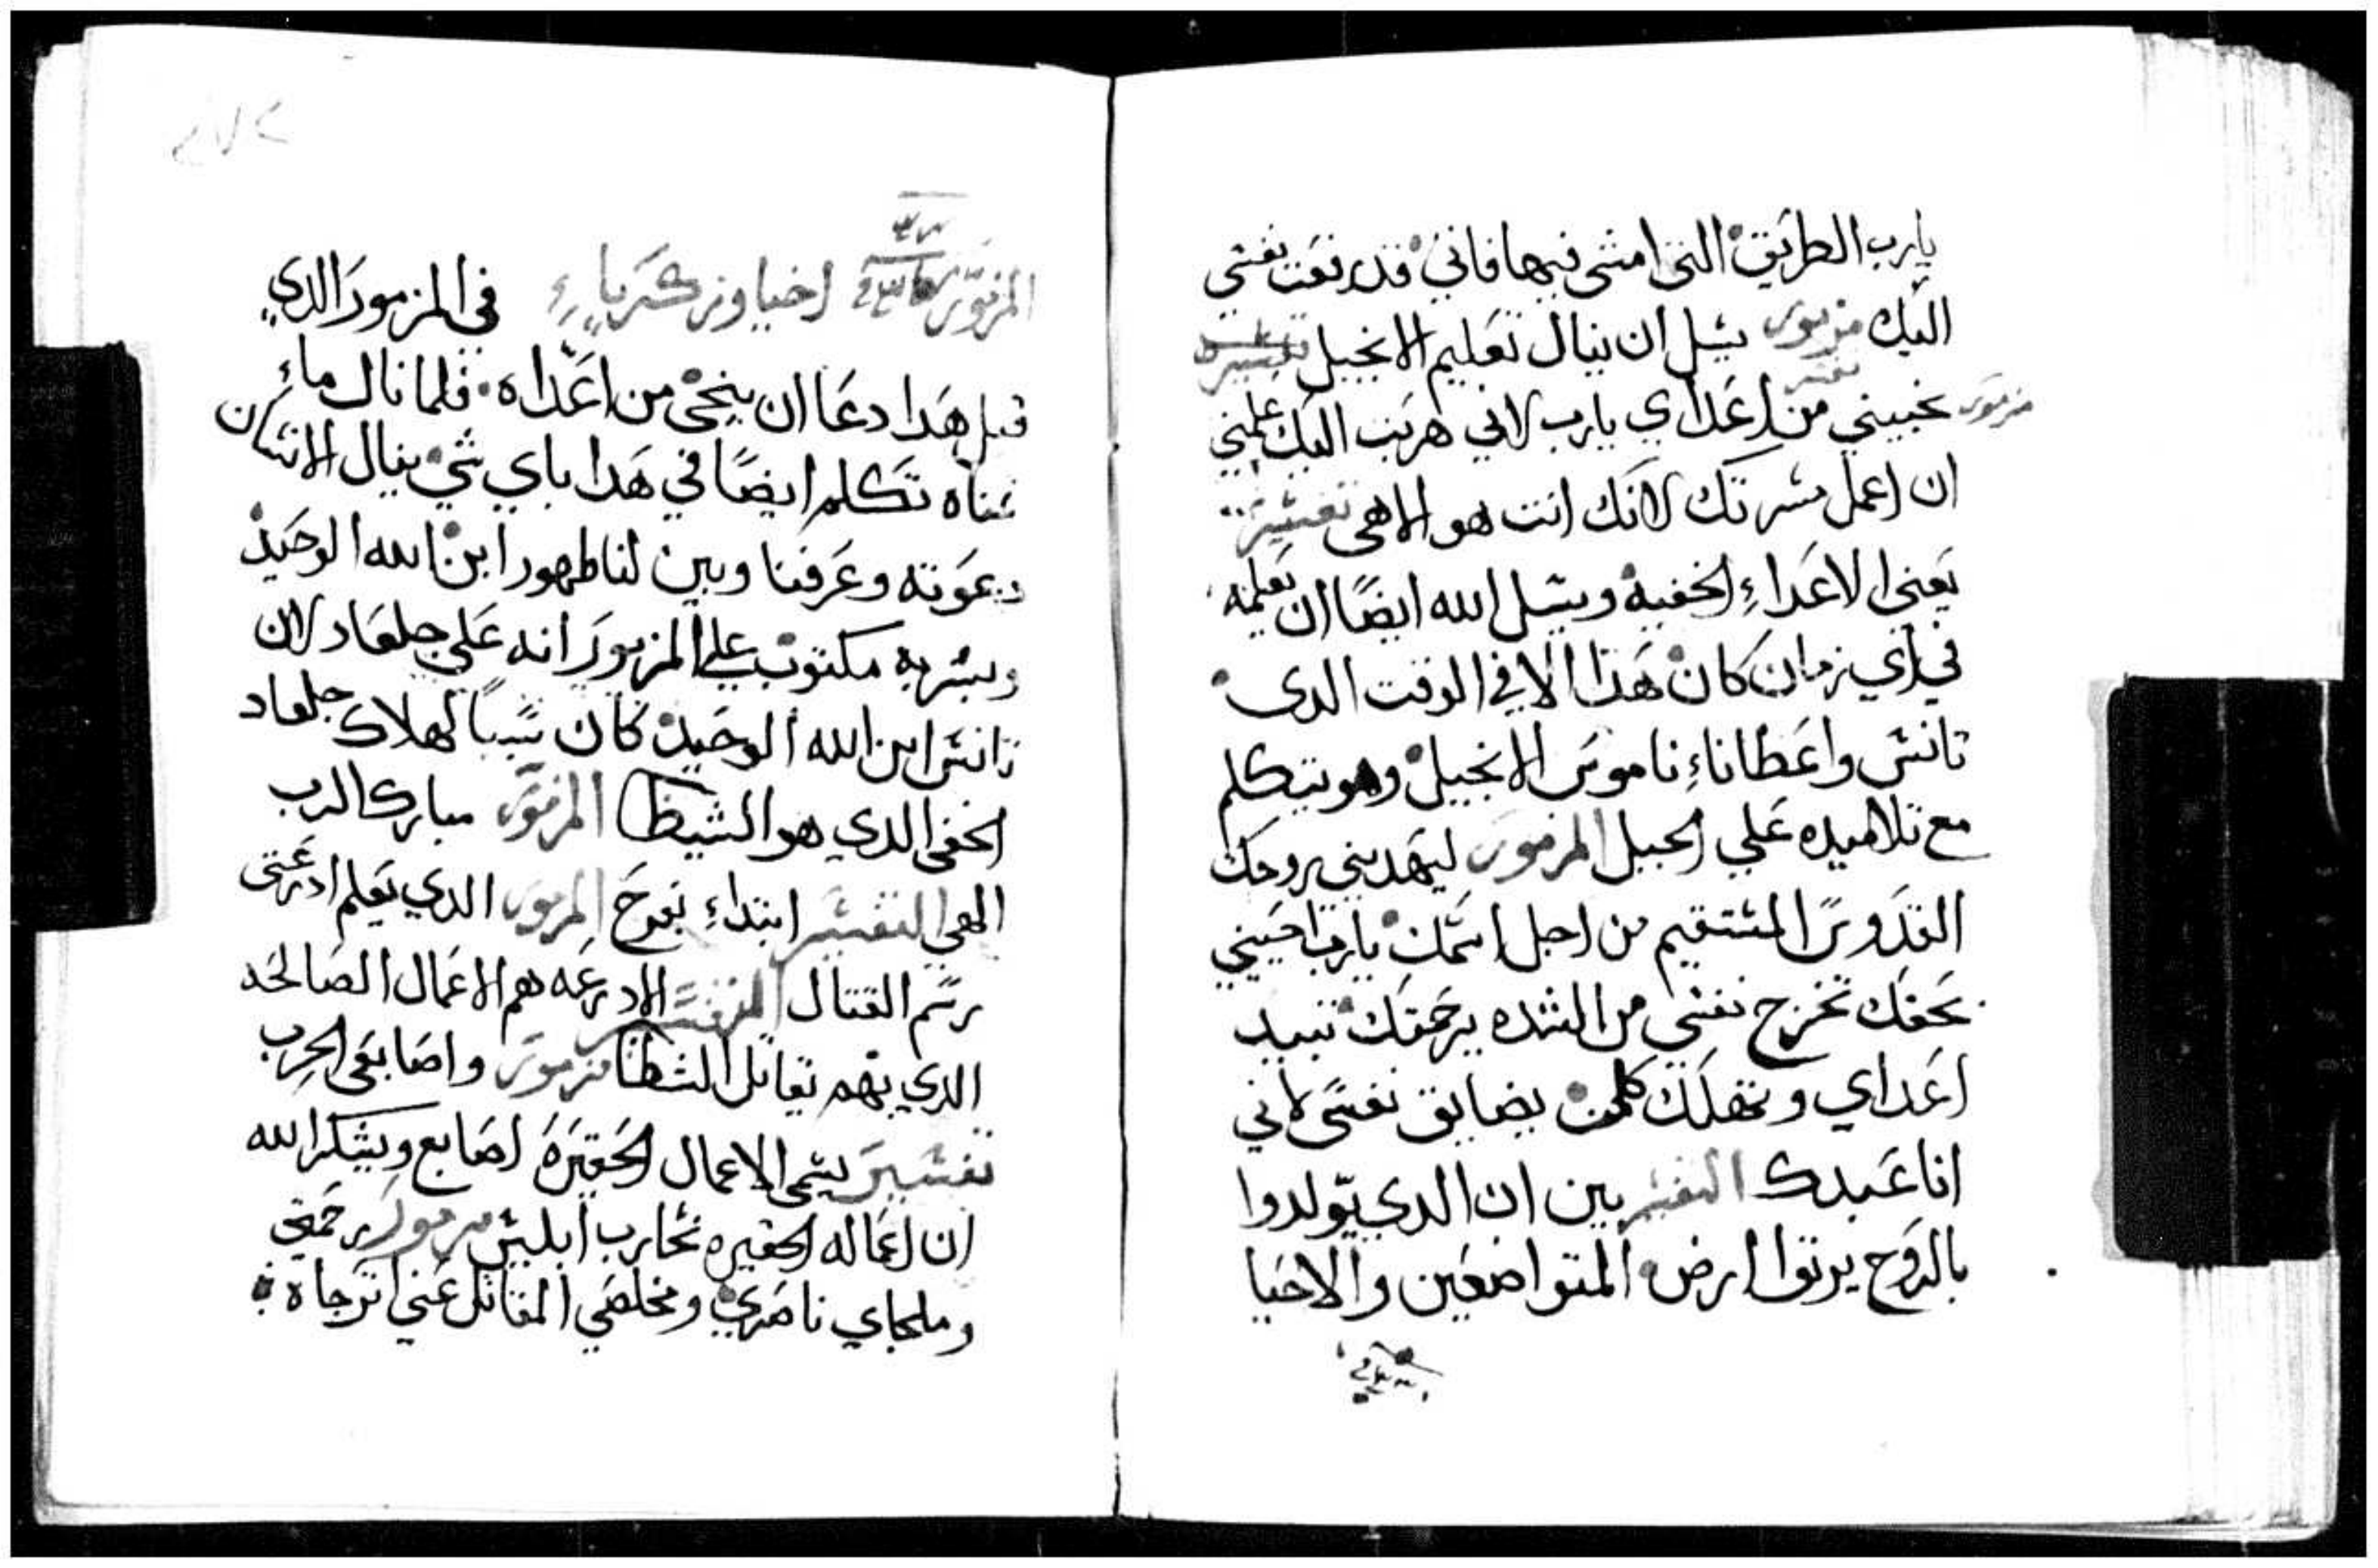 يارب الطريق التي امشي فيها فاني قد رفعت نفسي
اليك مزمور يسل ان ينال تعليم الانجيل تفسير
مزمور نجيني من اعداي يارب لاني هربت اليك علمني
تفسير
ان اعمل مسرتك لانك انت هو الاهي تفسير
يعني الاعداء الخفيه ويسل الله ايضًا ان يعلمه
في اي زمان كان هذا الا في الوقت الدى
تانس واعطاناء ناموس الانجيل وهو يتكلم
مع تلاميده علي الجبل المزمور ليهديني روحك
القدوس المستقيم من اجل اسمك يارب احييني
بحقك تخرج نفسي من الشده برحمتك تبيد
اعداي وتهلك كلمن يضايق نفسى لاني
انا عبدك التفسير بين ان الدي يتولدوا
بالروح يرتوا ارض المتواضعين والاحيا
المزمور اخيا وزكرياء في المزمور الدي
قبل هدا دعا ان ينجى من اعداه فلما نال ماء
تمناه تكلم ايضًا في هدا باي شي ينال الانسان
دعوته وعرفنا وبين لنا ظهور ابن الله الوحيد
وبشر به مكتوب علي المزمور انه علي جلعاد لان
تانس ابن الله الوحيد كان سببًا لهلاك جلعاد
الخفي الدي هو الشيطا المزمور مبارك الرب
الهي التفسير ابتداء بفرح المزمور الدي يعلم ادرعتى
رسم القتال التفسير الادرعه هم الاعمال الصالحه
الدي بهم نقاتل الشطا مزمور واصابعى الحرب
تفسير يسمى الاعمال الحقيره اصابع ويشكر الله
ان اعماله الحقيره تحارب ابليس مزمور رحمتي
وملجاي ناصري ومخلصي المقاتل عني اترجاه